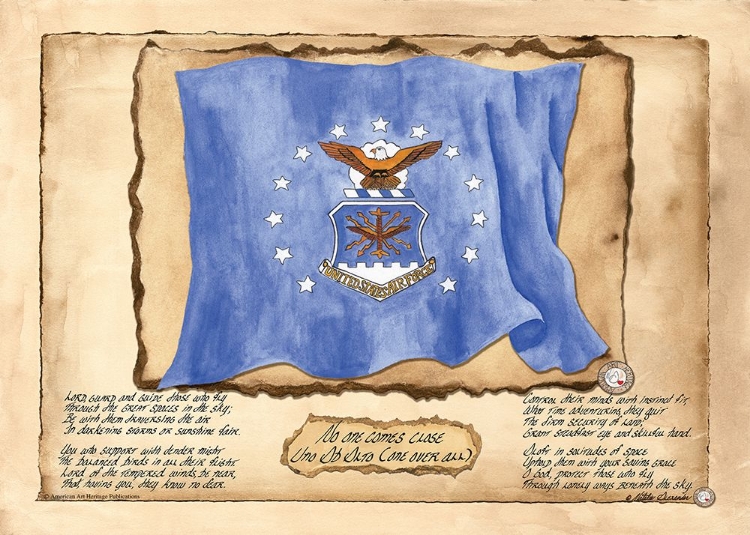 UNITED STATES AIR FORCE
Lord, guard and guide those who fly
Through the great spaces in the sky;
Be with them traversing the air
In darkening storms or sunshine fair.
You who support with tender might
The balanced birds in all their flight
Lord of the tempered winds, be near,
That having you, they know no fear.
© American Art Heritage Publications
No one comes close
(Uno Ab Alto (One over all)
Control their minds with instinct fit
What time adventuring, they quit
The firm security of land;
Grant steadfast eye and skillful hand.
Aloft in solitudes of space
Uphold them with your saving grace
O God, protect those who fly
Through lonely ways beneath the sky.